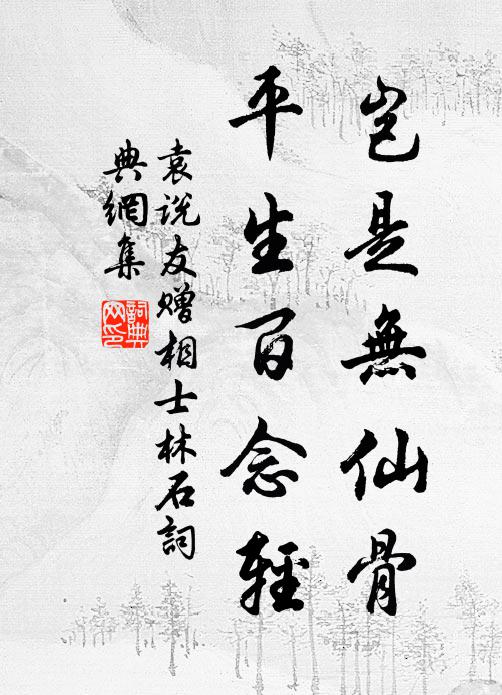 岂是無仙骨
平生百念輕
袁说友赠相士林石詞
典網集
詞典
网印